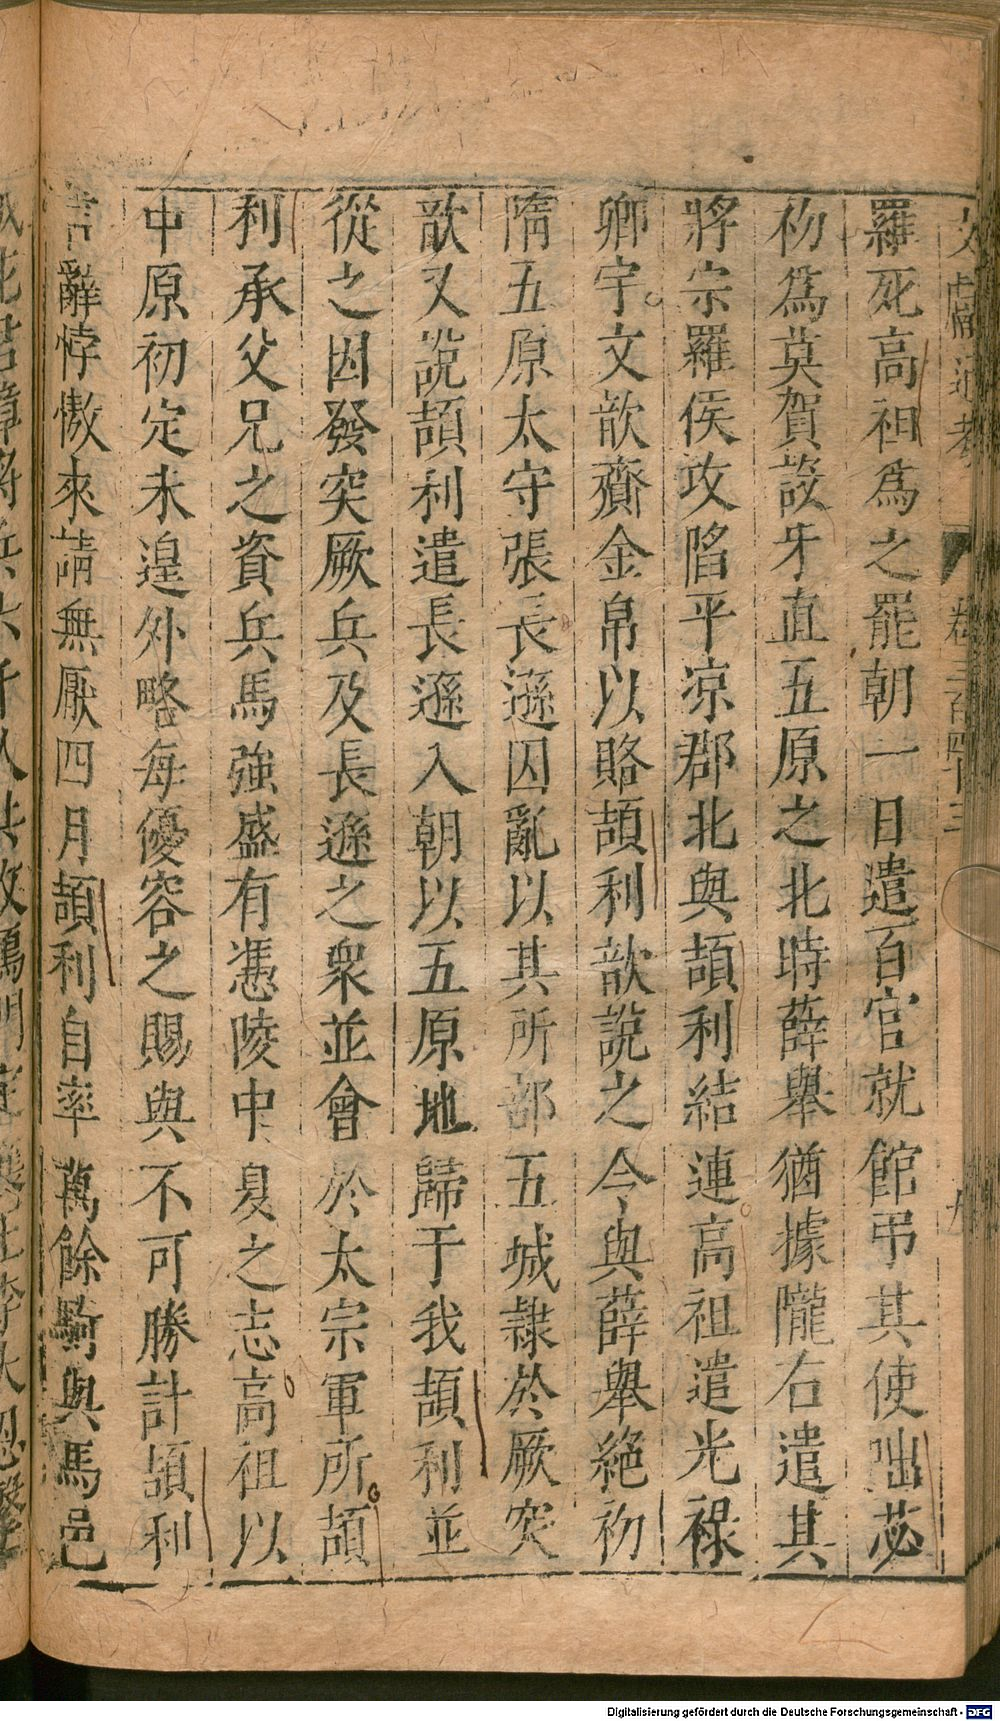 文獻通考 卷三百四十三
羅死高祖爲之罷朝一日遣百官就館弔其使咄苾
初爲莫賀設牙直五原之北時薛舉猶據隴右遣其
將宗羅侯攻陷平凉郡北與頡利結連高祖遣光祿
卿宇文歆齎金帛以賂頡利歆說之令與薛舉絕初
隋五原太守張長遜因亂以其所部五城隷於厥突
歆又說頡利遣長遜入朝以五原地歸于我頡利並
從之因發突厥兵及長遜之衆並會於太宗軍所頡
利承父兄之資兵馬強盛有憑陵中夏之志高祖以
中原初定未遑外略每優容之賜與不可勝計頡利
言辭悖慠來請無厭四月頡利自率萬餘騎與馬邑
Digitalisierung gefördert durch die Deutsche Forschungsgemeinschaft - DFG